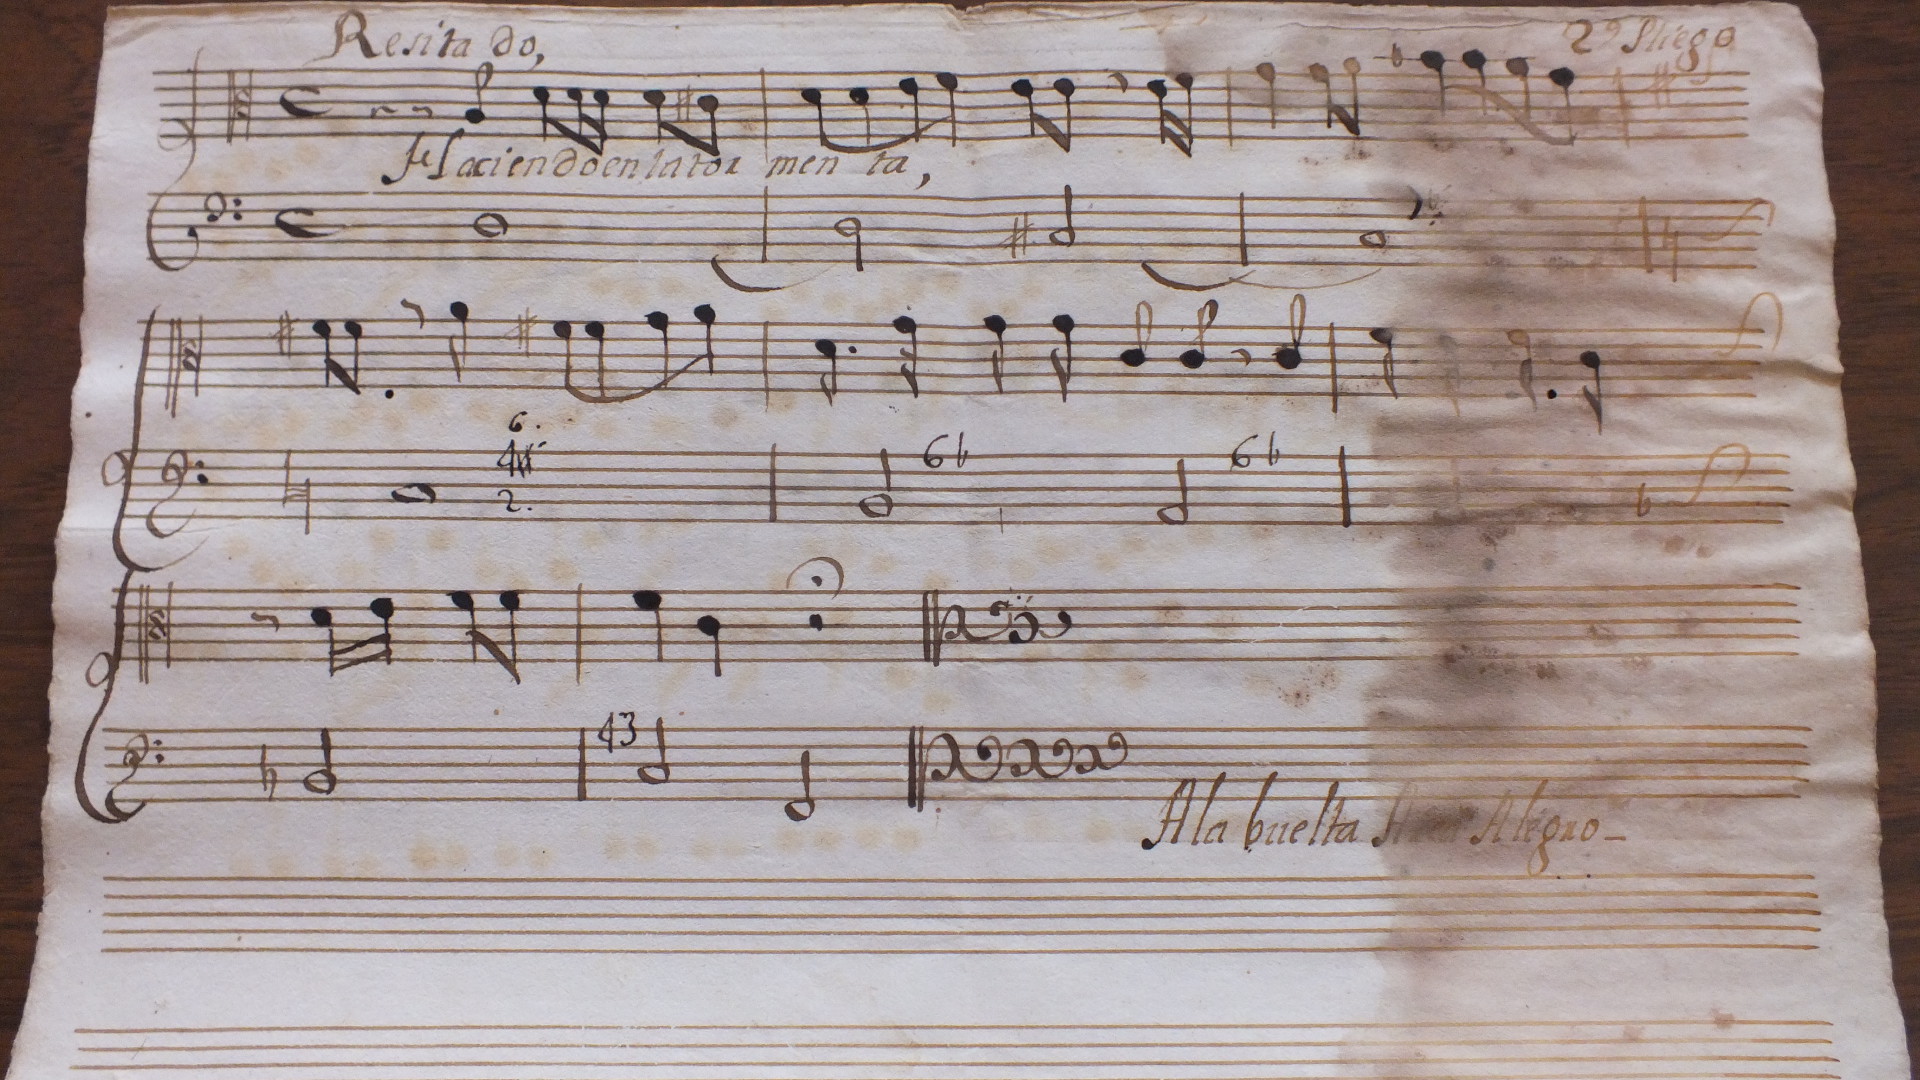 Resitado,
2º Pliego
Haciendo en la tor men ta,
6.
4
2.
6b 6b
43
A la buelta Alegro